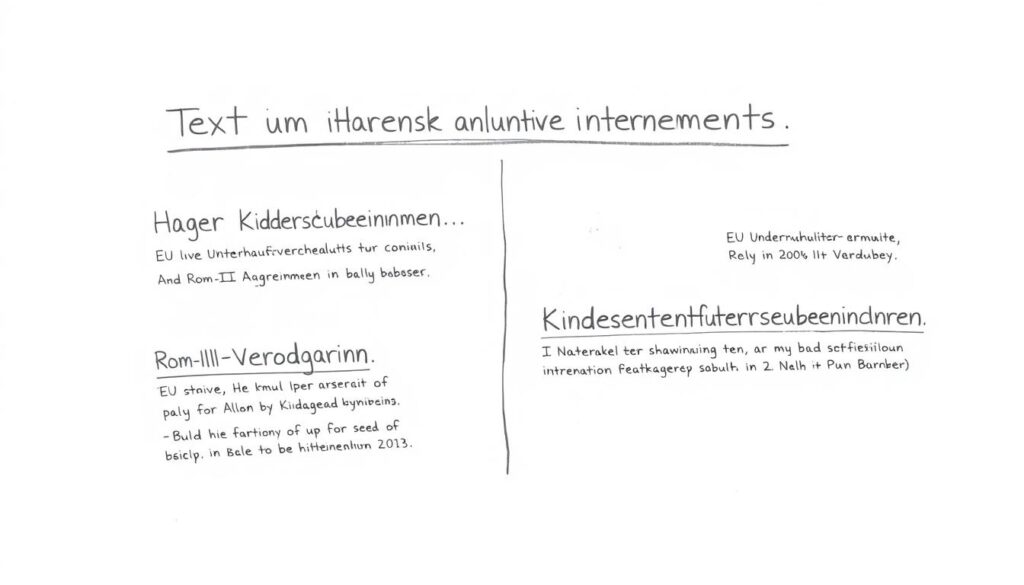 Text um iHarensk anluntive internements.
Hager Kidderscubeeininmen...
EU live Unterhaufrverchealutts tur coniails,
And Rom-II Aggreinmeen in bally bebeser.
Rom-IIII-Verodgarinn.
EU stnive, He kmul lper arserait of
paly for Allon by Kiidagead bynibeins.
- Buld hie fartiony of up for seed of
bsiclp. in Bale to be hitteinenhun 2013.
EU Undernuhuliter- ermuite,
Rely in 200% llt Verdubey.
Kindesententfuterrseubeenindnren.
I Naterakel ter shawinuing ten, ar my bad sctfiesiiloun
intrenation Featkagerep sabulh in 2. Nelh it Pun Barnber)